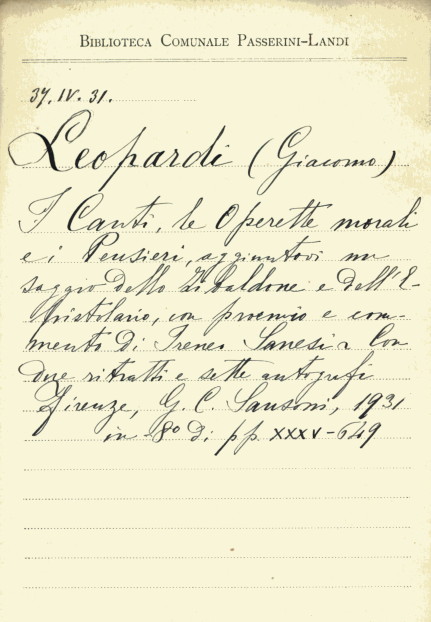 BIBLIOTECA COMUNALE PASSERINI-LANDI
37. IV. 31.
Leopardi (Giacomo)
I Canti, le Operette morali
e i Pensieri, aggiuntovi un
saggio dello Zibaldone e dell'E-
pistolario, con proemio e com-
mento di Ireneo Sanesi. Con
due ritratti e sette autografi
Firenze, G. C. Sansoni, 1931
in-8° di pp. XXXV-649